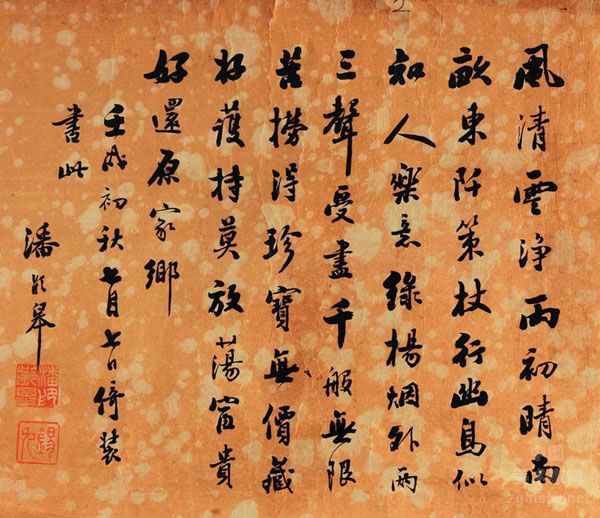 風清雲淨雨初晴南
畝東阡策杖行幽鳥似
知人樂意綠楊烟外兩
三聲受盡千般無限
苦撈得珍寶無價藏
好護持莫放蕩富貴
好還原家鄉
壬戌初秋七月七日倚裝
書此
潘齡皋